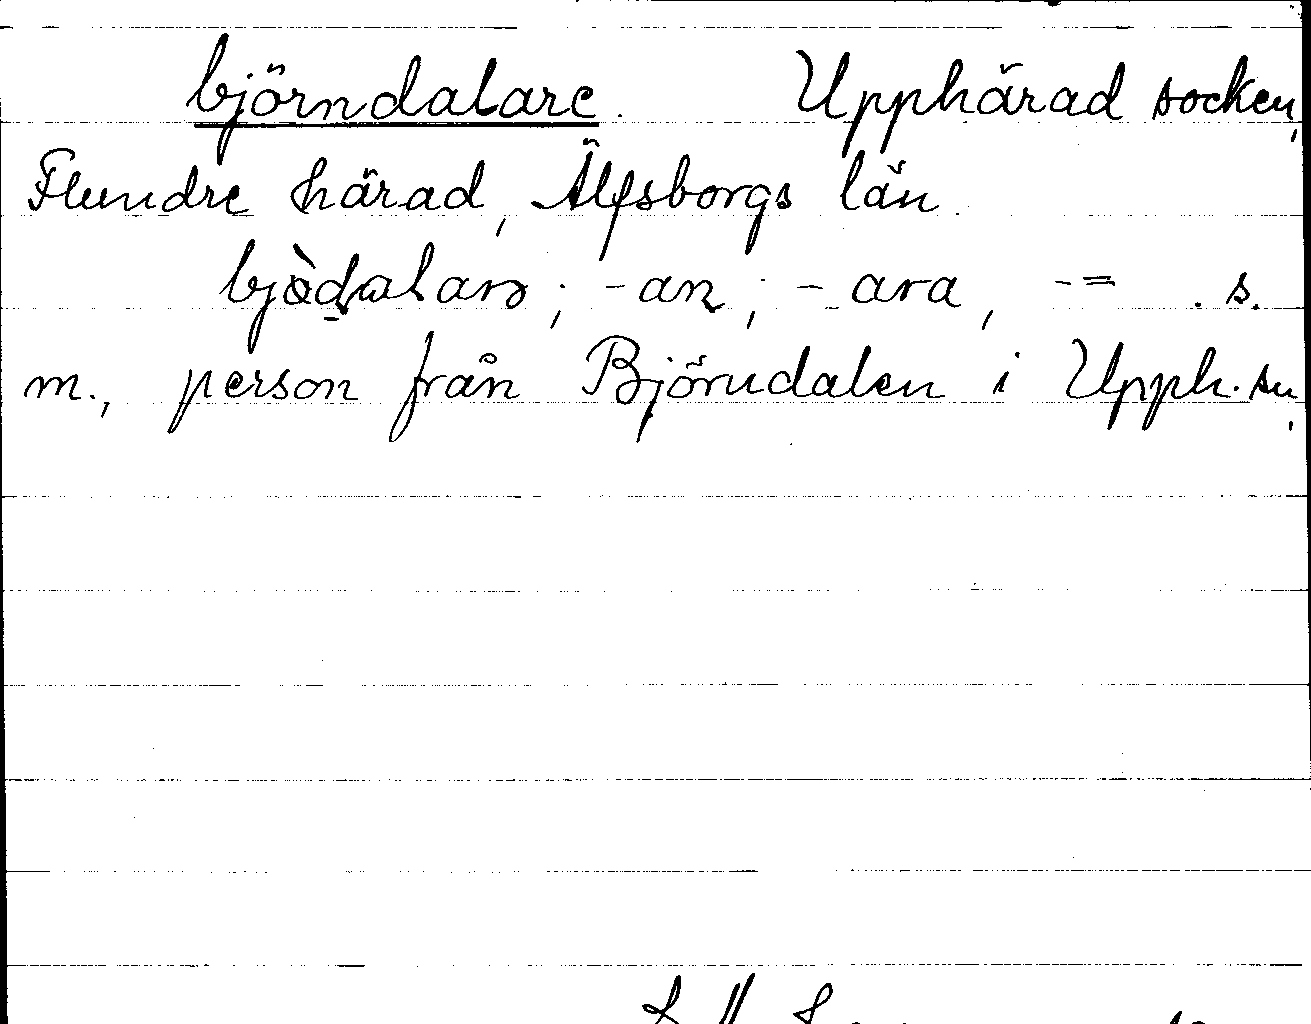 björndalare. Upphärad socken,
Flundre härad, Älfsborgs län.
bjòdalarə; -an; -ara, -= . s.
m., person från Björndalen i Upph. sn.